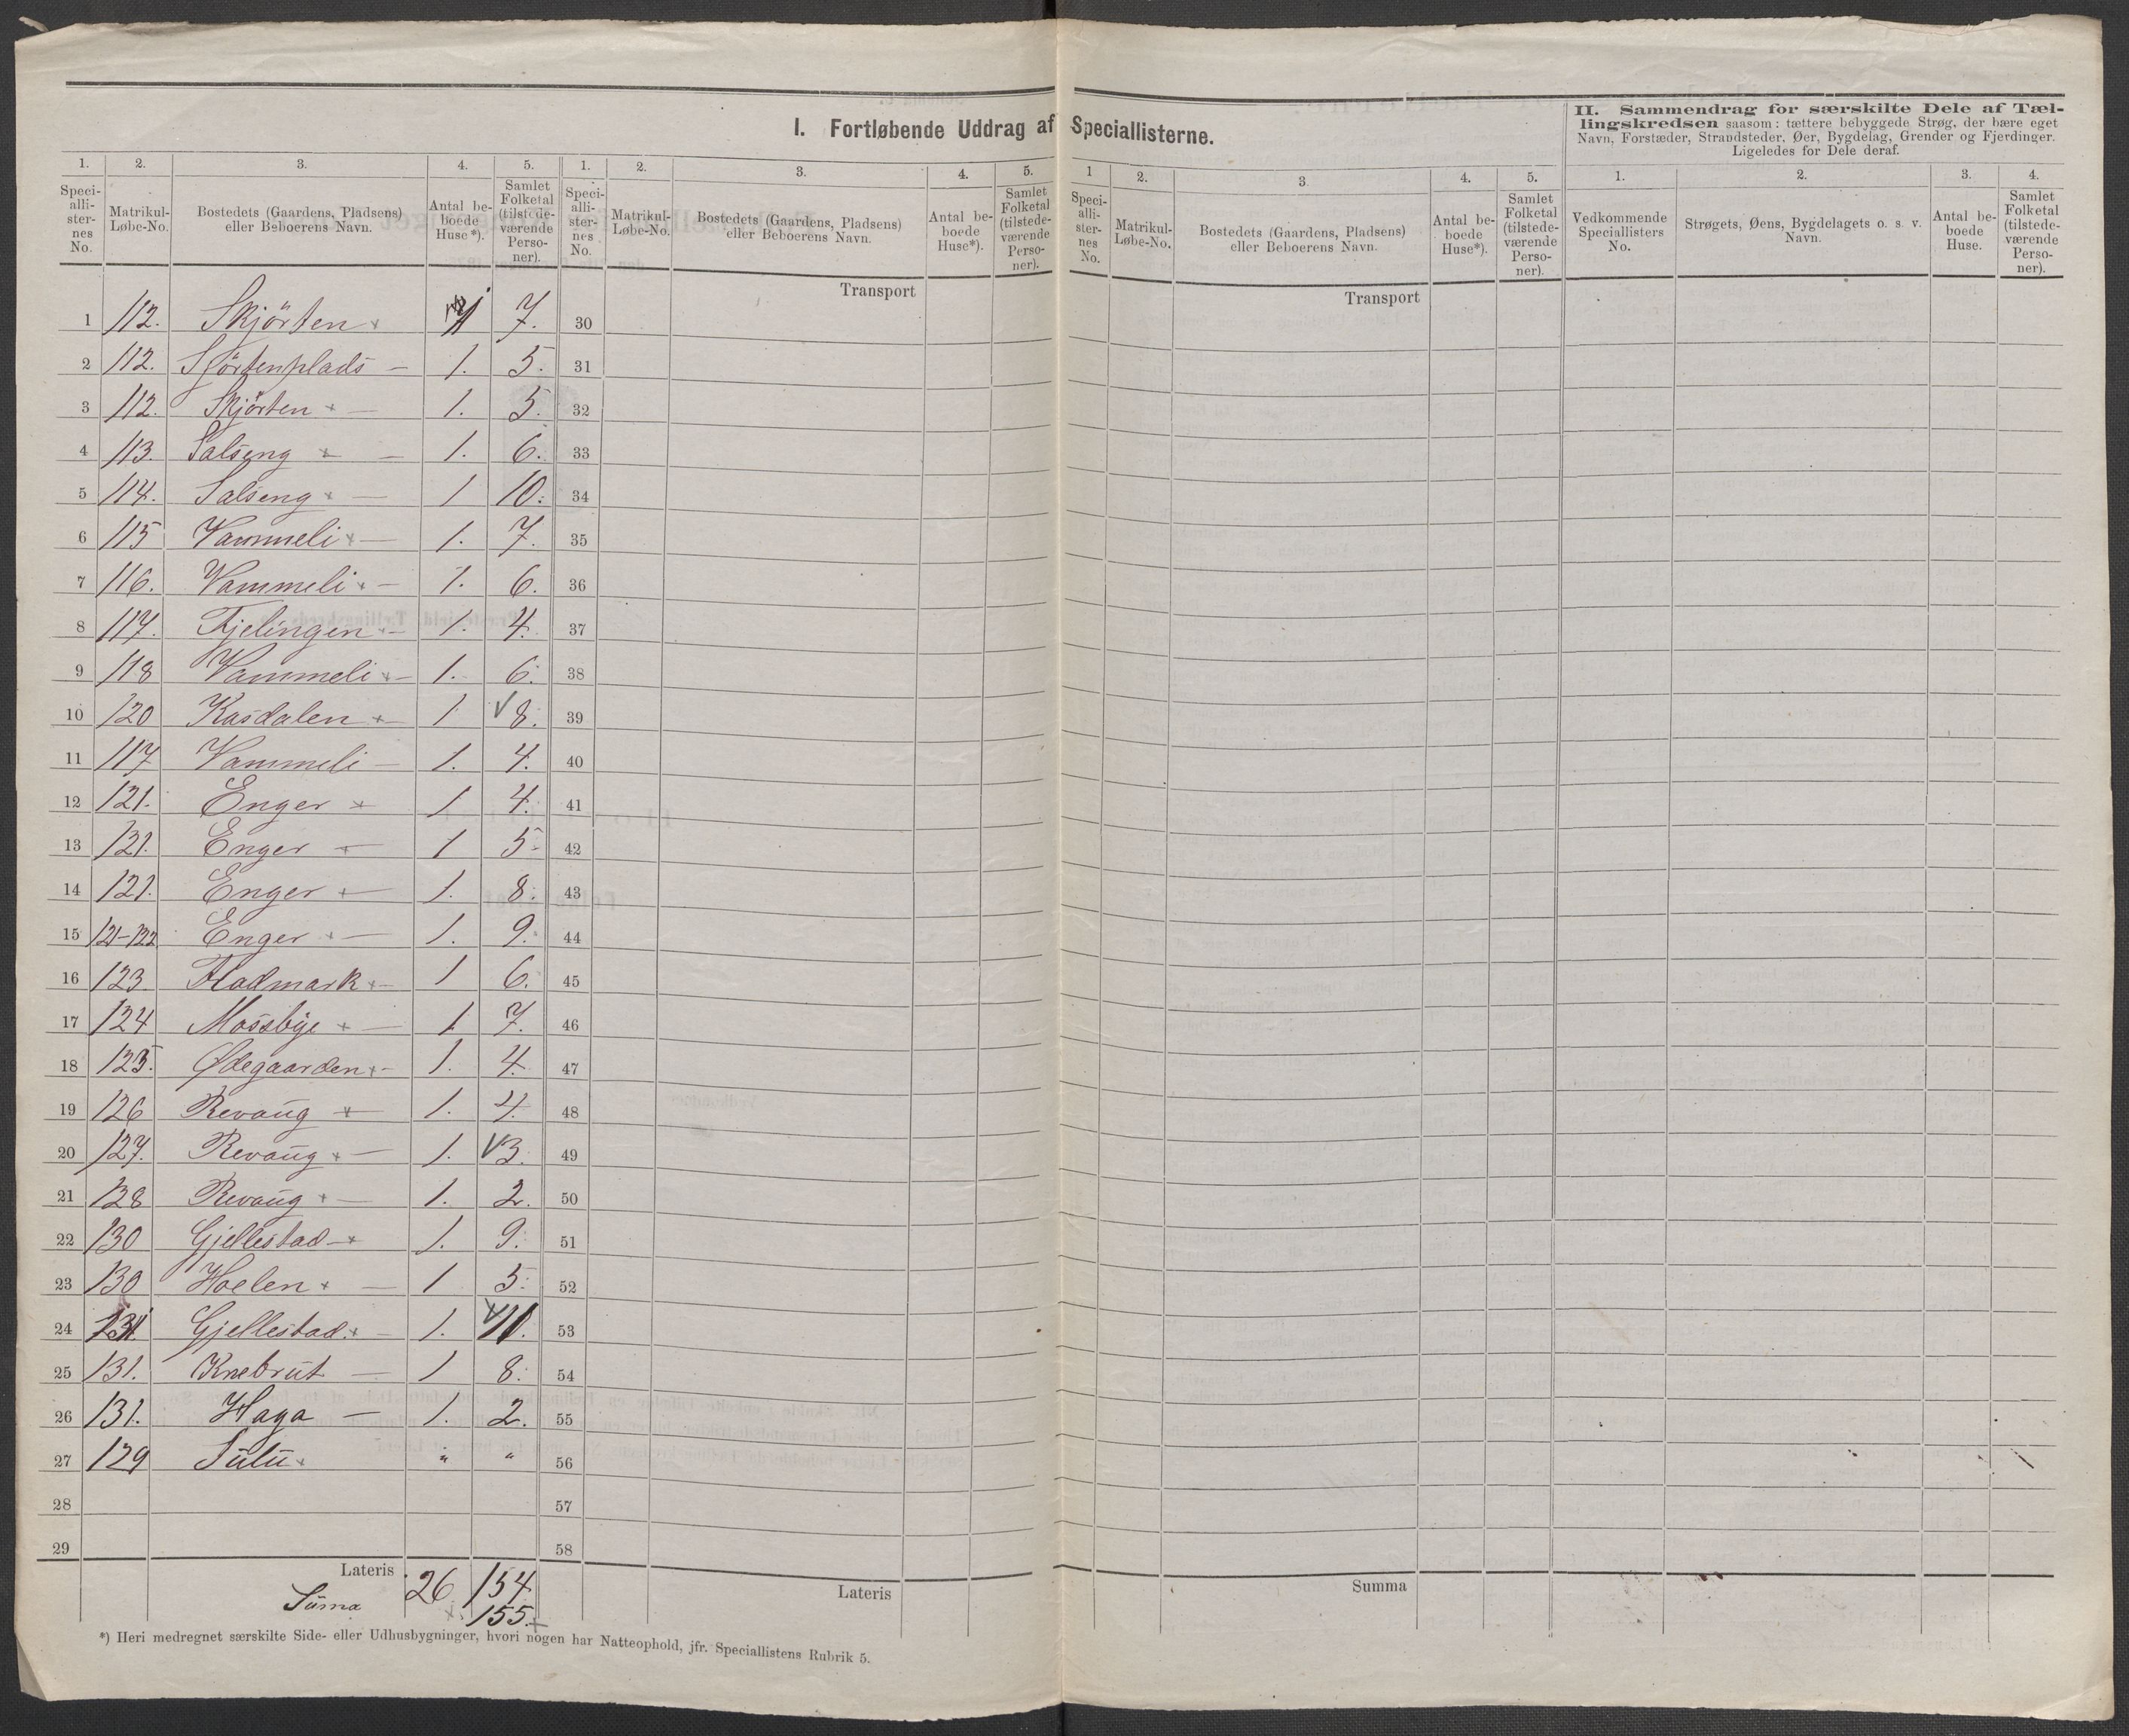 I. Fortløbende Uddrag af Speciallisterne.
II. Sammendrag for særskilte Dele af Tæl-
lingskredsen saasom: tættere bebyggede Strøg, der bære eget
Navn, Forstæder, Strandsteder, Øer, Bygdelag, Grender og Fjerdinger.
Ligeledes for Dele deraf.
1. 2. 3. 4. 5. 1. 2. 3. 4. 5. 1 2. 3. 4. 5. 1. 2. 3. 4.
Speci-
alli-
ster-
nes
No.
Matrikul-
Løbe-No.
Bostedets (Gaardens, Pladsens)
eller Beboerens Navn.
Antal be-
boede
Huse*).
Samlet
Folketal
(tilstede-
værende
Perso-
ner).
Speci-
alli-
ster-
nes
No.
Matrikul-
Løbe-No.
Bostedets (Gaardens, Pladsens)
eller Beboerens Navn.
Antal be-
boede
Huse*).
Samlet
Folketal
(tilstede-
værende
Perso-
ner).
Speci-
alli-
ster-
nes
No.
Matrikul-
Løbe-No.
Bostedets (Gaardens, Pladsens)
eller Beboerens Navn.
Antal be-
boede
Huse*).
Samlet
Folketal
(tilstede-
værende
Perso-
ner).
Vedkommende
Speciallisters
No.
Strøgets, Øens, Bygdelagets o. s. v.
Navn.
Antal be-
boede
Huse.
Samlet
Folketal
(tilstede-
værende
Perso-
ner).
Transport Transport
1 112. Skjörten 1 7. 30
2 112. Sjörtenplads – 1. 5. 31
3 112. Skjörten + – 1. 5. 32
4 113. Salseng + – 1. 6. 33
5 114. Salseng + – 1 10. 34
6 115 Vammeli + – 1. 7. 35
7 116. Vammeli + – 1. 6. 36
8 117. Fjelingen – 1. 4. 37
9 118 Vammeli + – 1. 6. 38
10 120 Kasdalen + – 1 V 8. 39
11 117 Vammeli – 1. 4. 40
12 121. Enger + – 1 4. 41
13 121. Enger + – 1 5. 42
14 121. Enger + – 1. 8. 43
15 121–122 Enger + – 1. 9. 44
16 123 Fladmark + – 1 6. 45
17 124 Mossbye + – 1 7. 46
18 125. Ødegaarden + – 1. 4. 47
19 126 Revaug + – 1. 4. 48
20 127. Revaug + – 1. V 3. 49
21 128 Revaug + – 1. 2. 50
22 130 Gjellestad – + 1. 9. 51
23 130 Hoelen + – 1 5. 52
24 131 Gjellestad + – 1. V 11. 53
25 131. Knebrut – 1 8. 54
26 131. Haga – 1. 2. 55
27 129 Sulu + " " 56
28 57
29 58
Lateris 26 154 Lateris Summa
Suma 155. +
*) Heri medregnet særskilte Side- eller Udhusbygninger, hvori nogen har Natteophold, jfr. Speciallistens Rubrik 5.